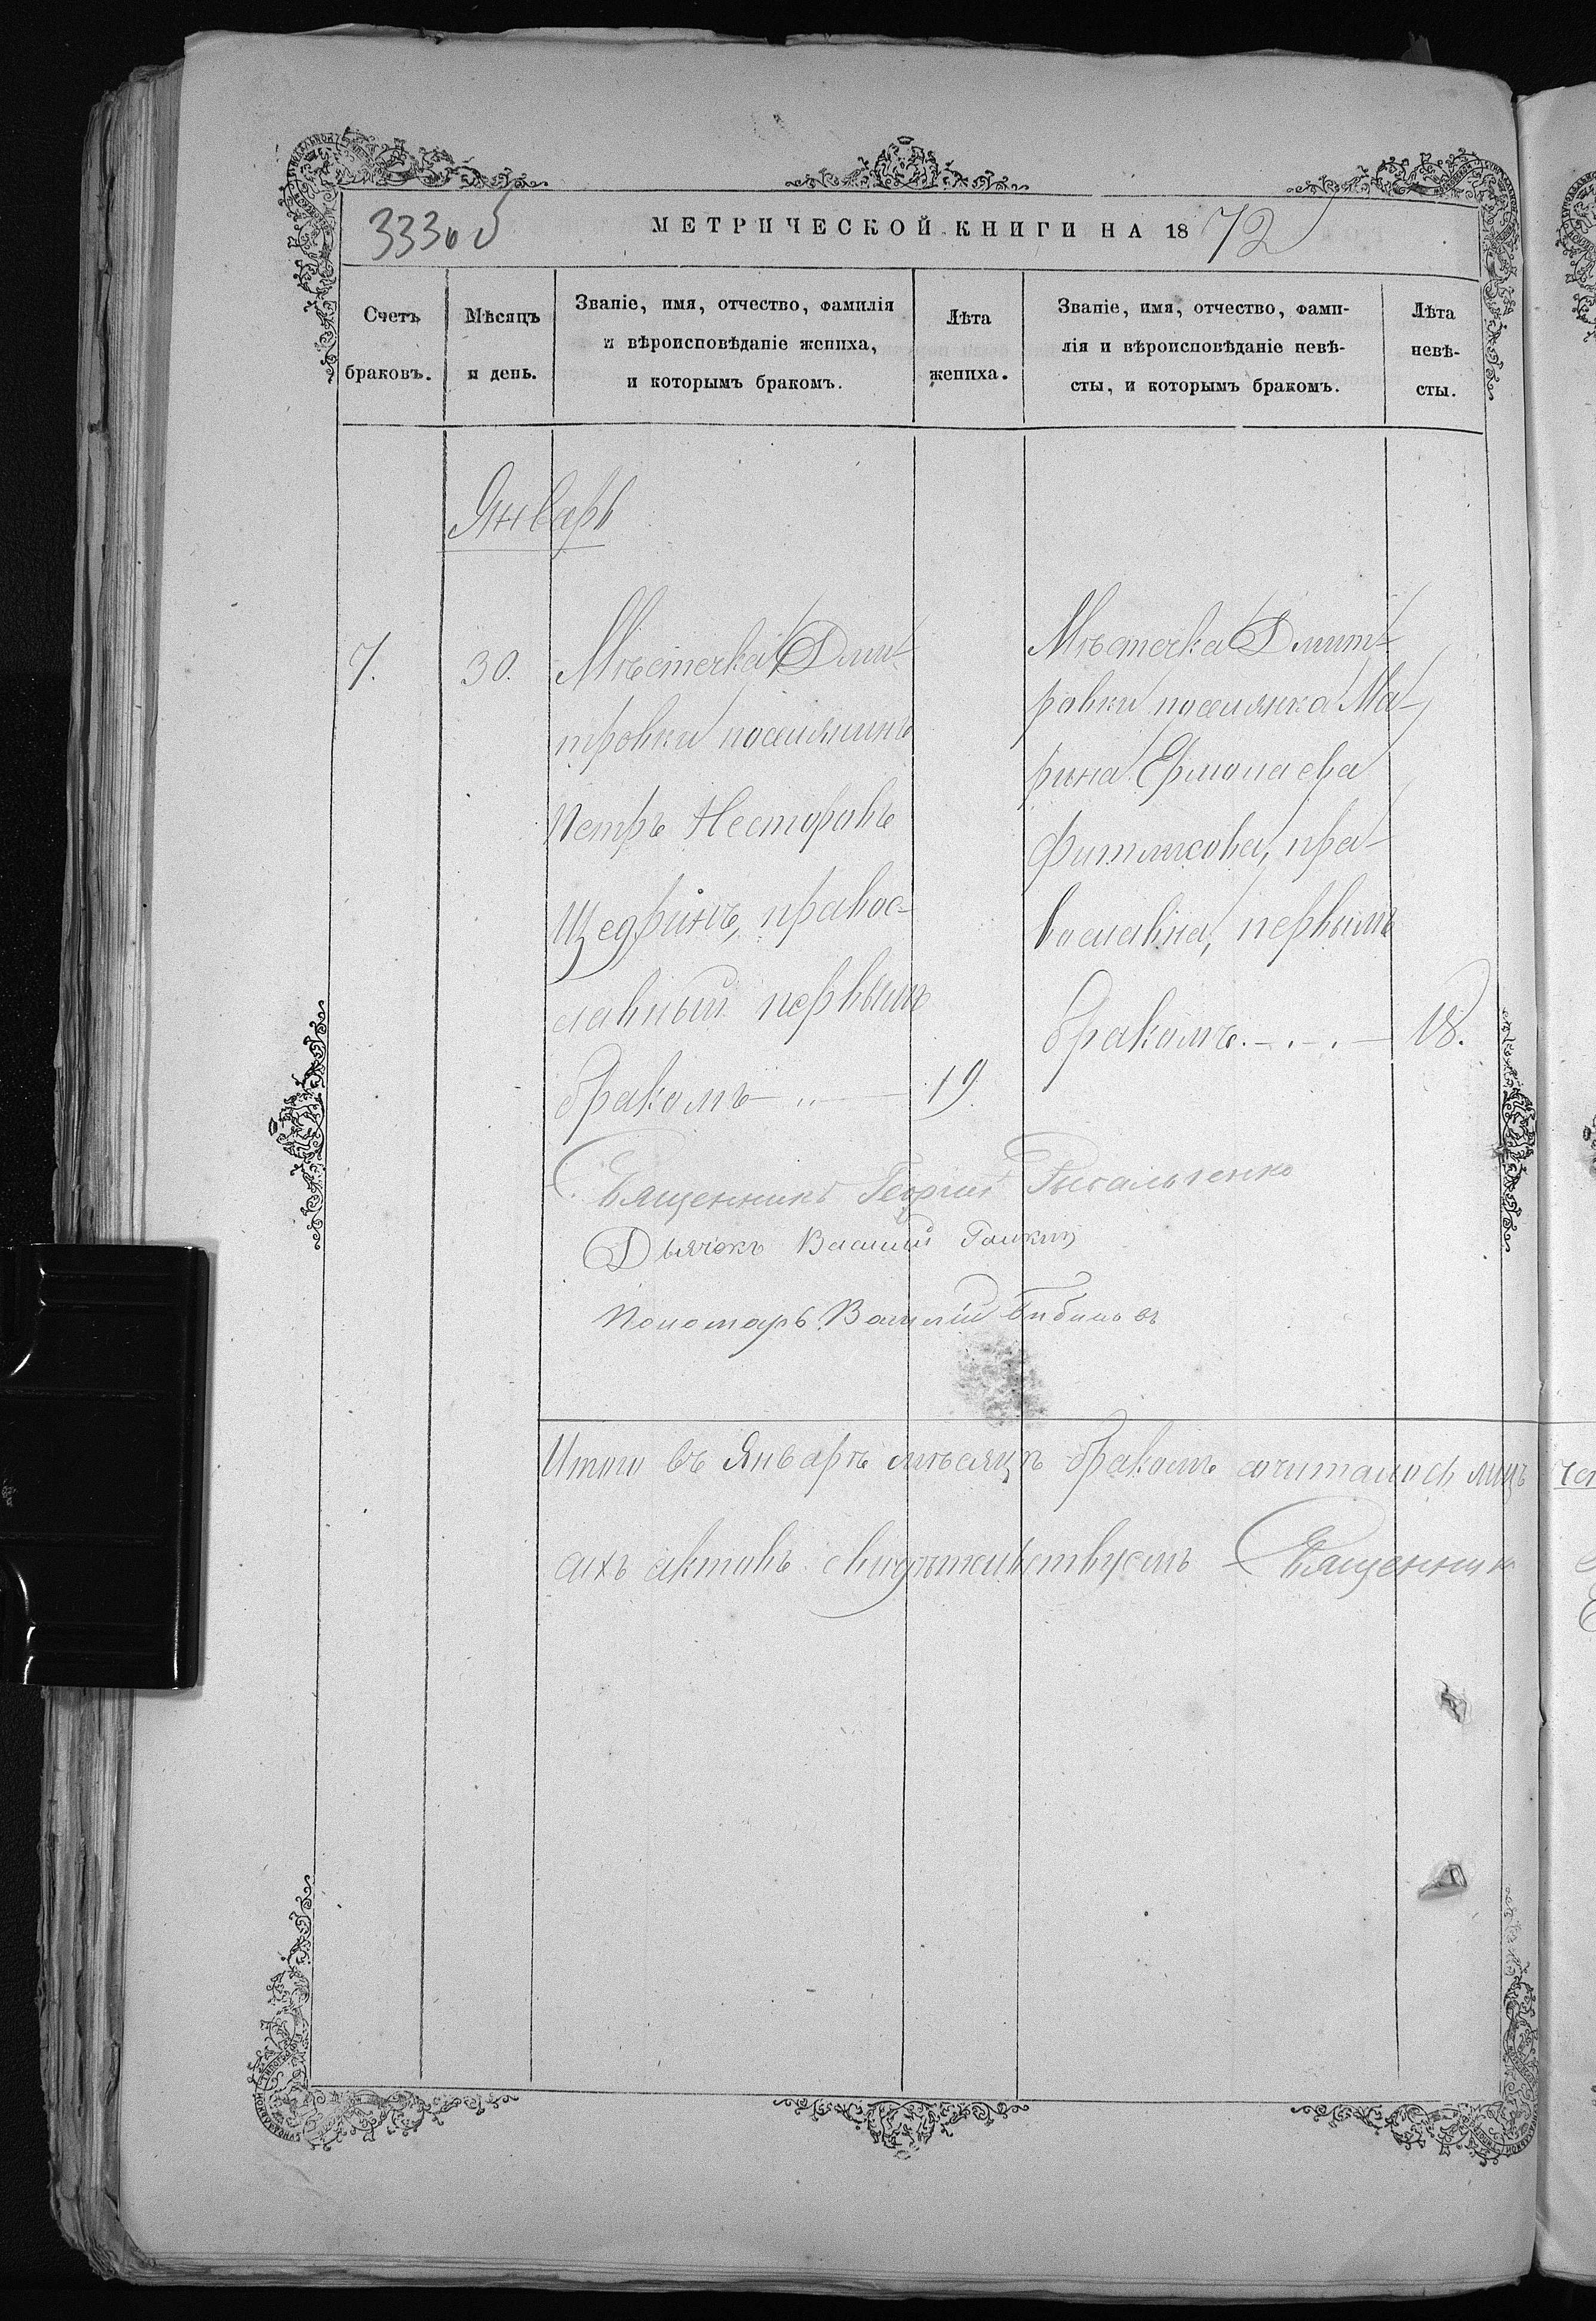 333 об
МЕТРИЧЕСКОЙ КНИГИ НА 1872
Счетъ браковъ.
Мѣсяцъ и день.
Званіе, имя, отчество, фамилія
и вѣроисповѣданіе жениха,
и которымъ бракомъ.
Лѣта жениха.
Званіе, имя, отчество, фами-
лія и вѣроисповѣданіе невѣ-
сты, и которымъ бракомъ.
Лѣта невѣ-
сты.
Январь
7.
30.
Мѣстечка Дми-
тровки поселянинъ
Петръ Несторовъ
Щедринъ, правос-
лавный первымъ
бракомъ
19
Мѣстечка Дмит-
ровки поселянка Ма-
рина Ермолаева
православна, первымъ
бракомъ.
18.
Священникъ Георгій
Дьячокъ Василій
Пономарь Василій
Итого въ Январѣ мѣсяцѣ бракомъ сочиталось лицъ
сихъ актовъ свидѣтельствуемъ Священник